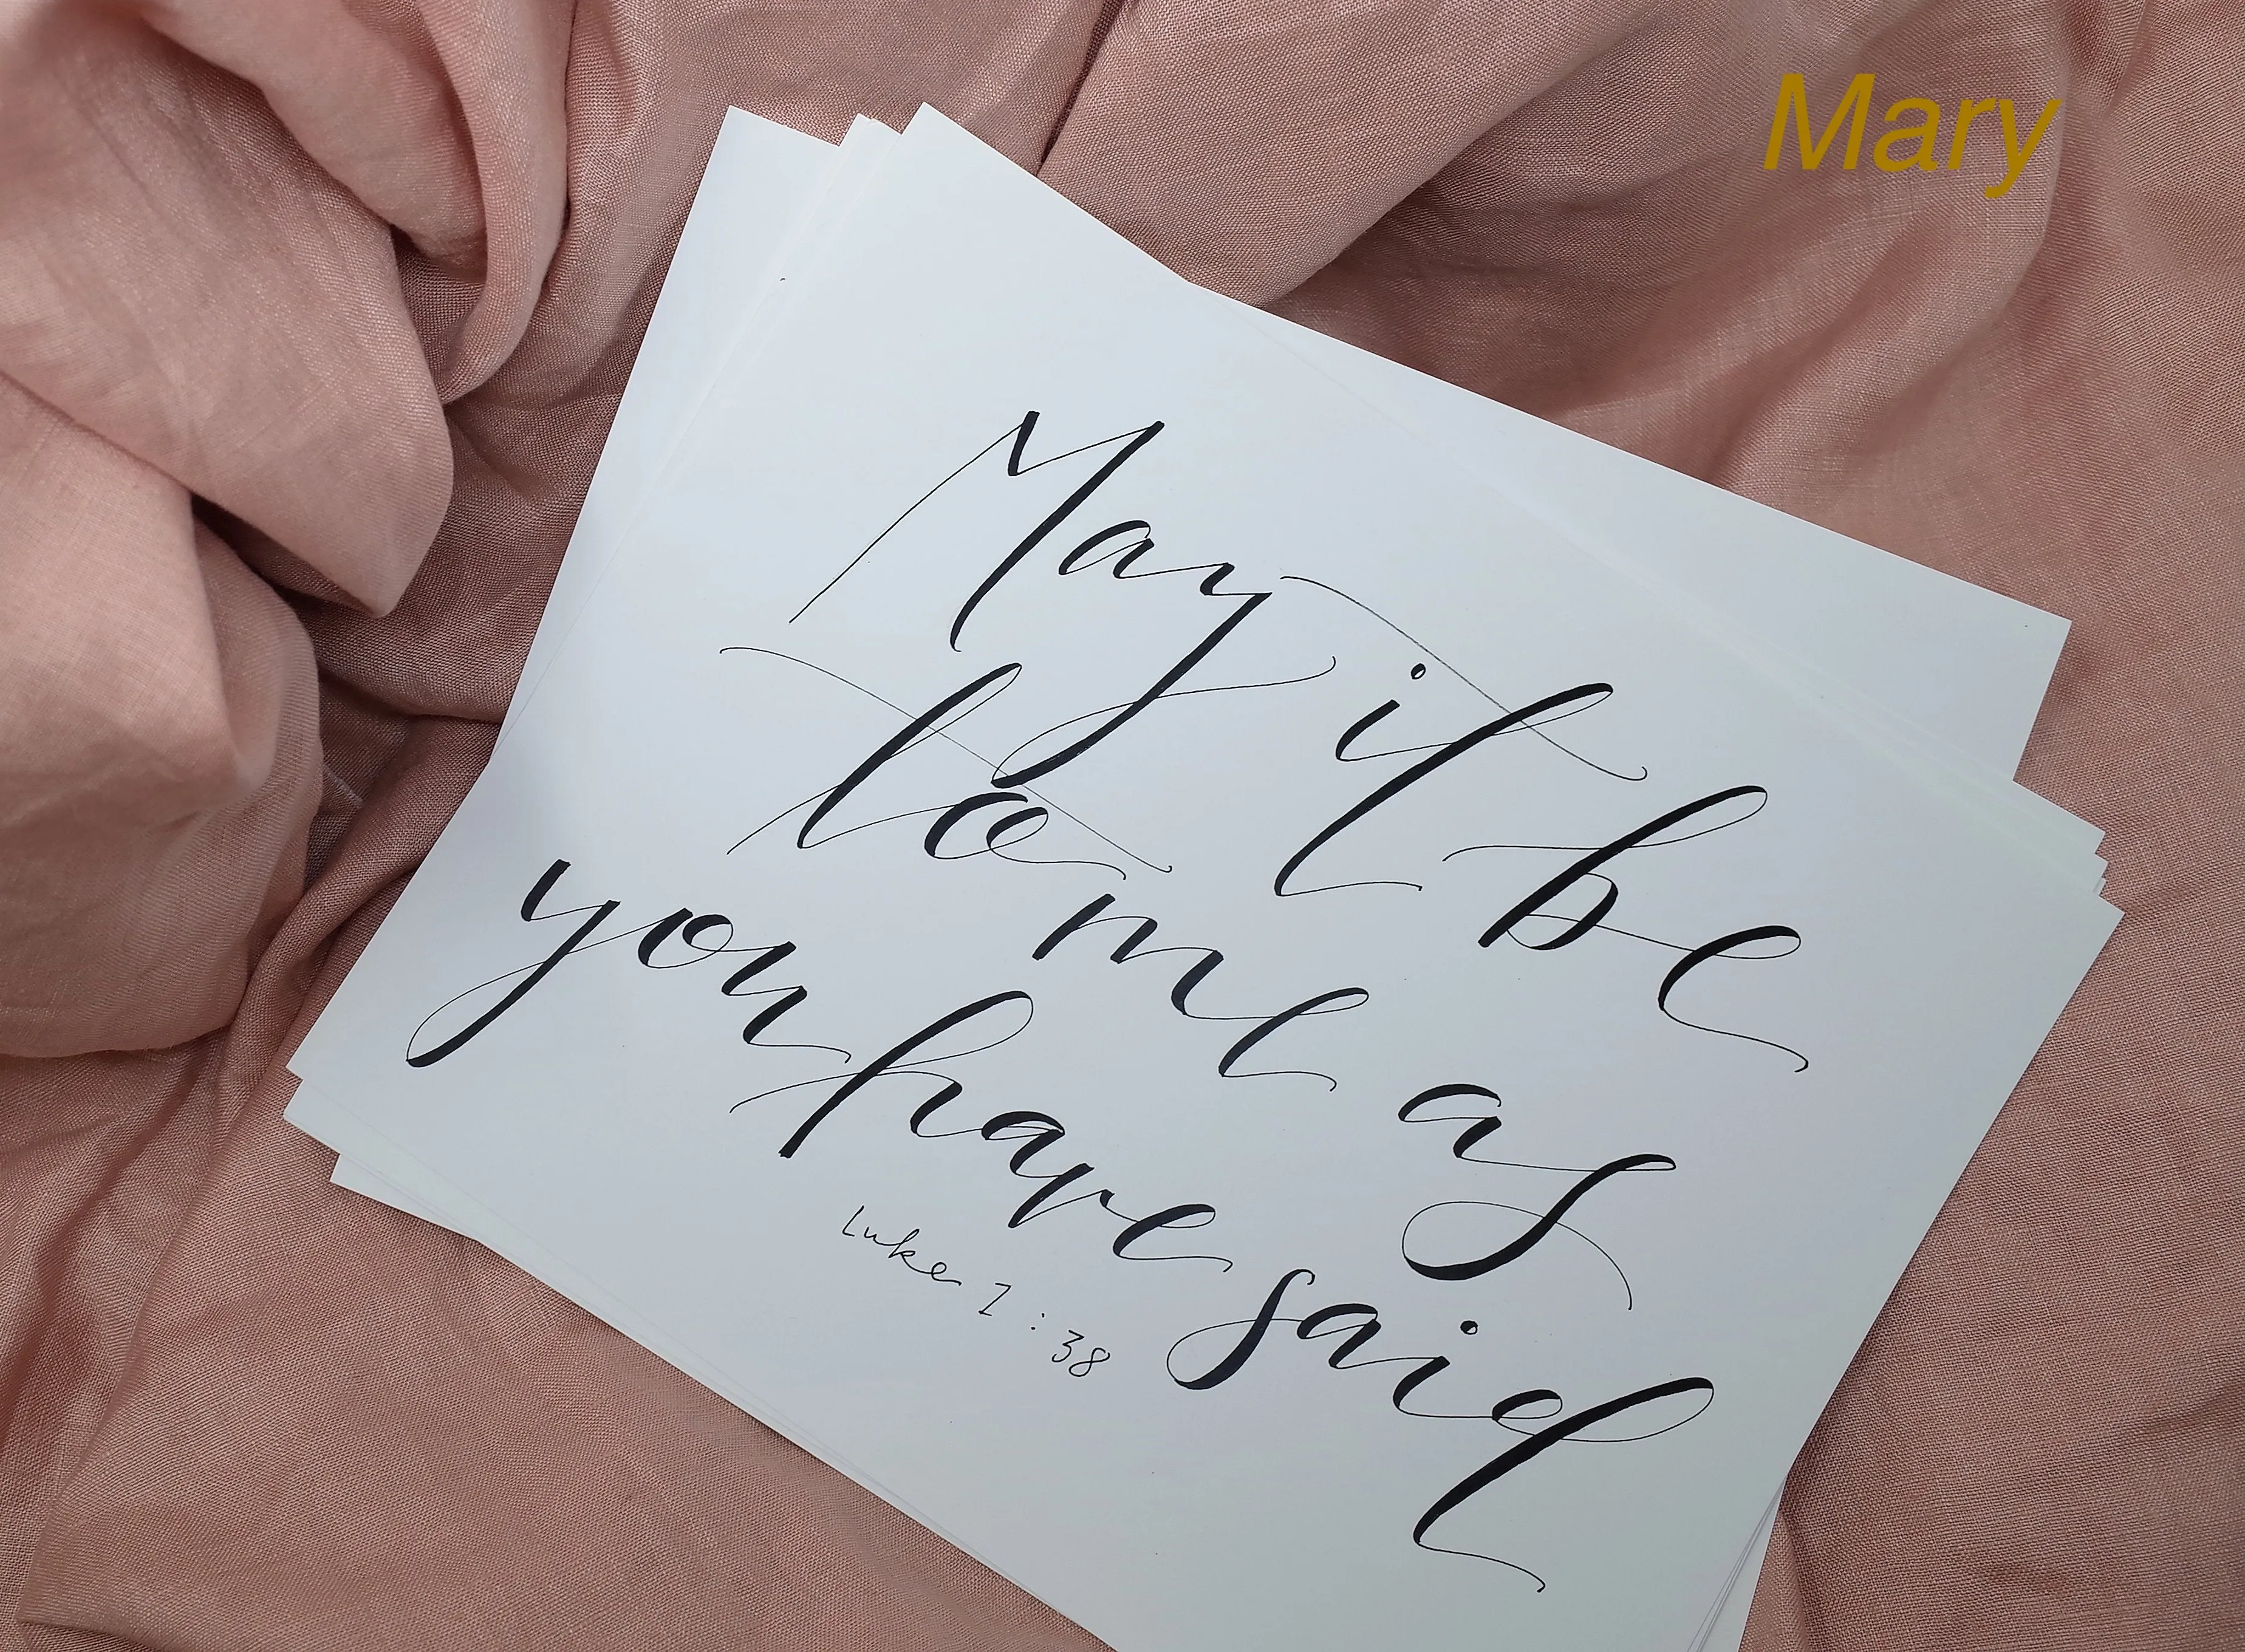 Mary
May it be
to me as
you have said
Luke 1:38